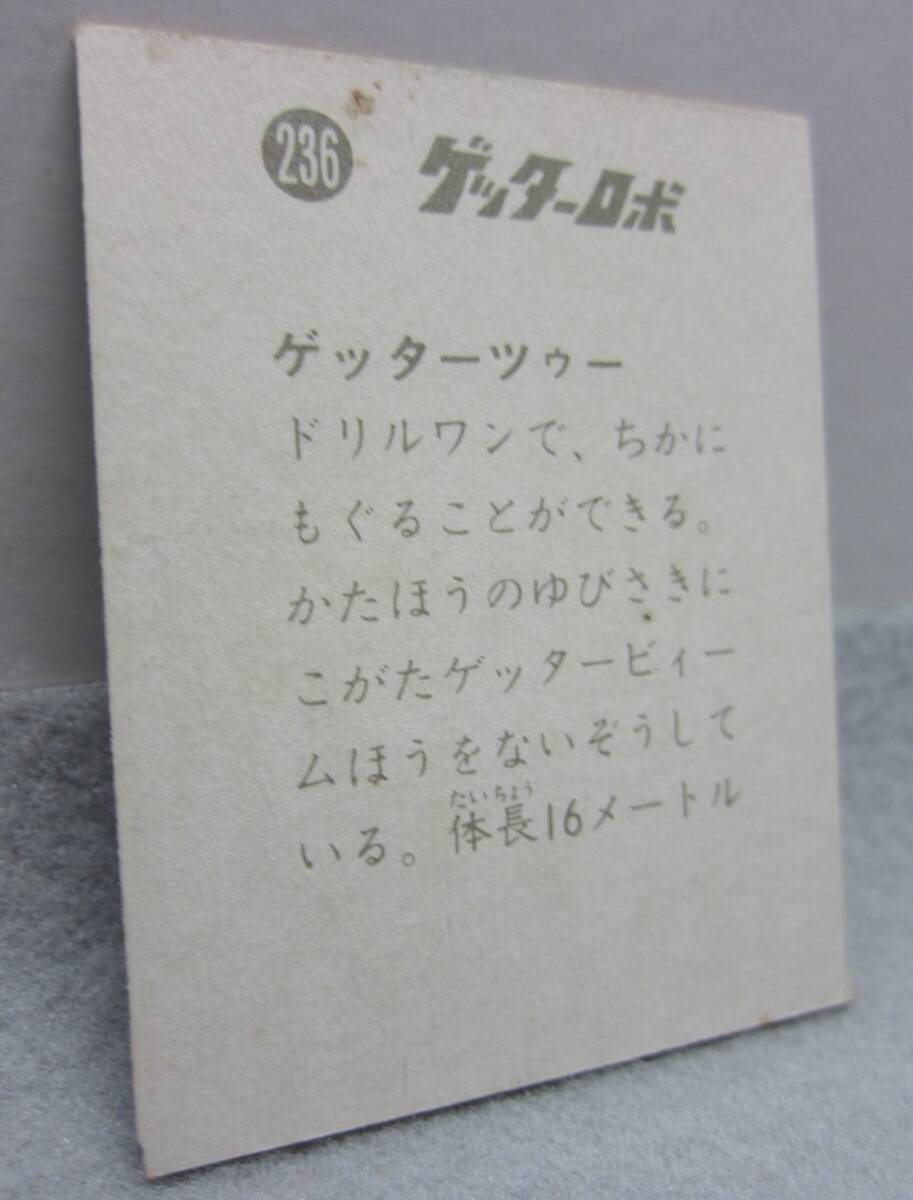 236 ゲッターロボ
ゲッターツゥー
ドリルワンで、ちかに
もぐることができる。
かたほうのゆびさきに
こがたゲッタービィー
ムほうをないぞうして
たいちょう
いる。体長16メートル